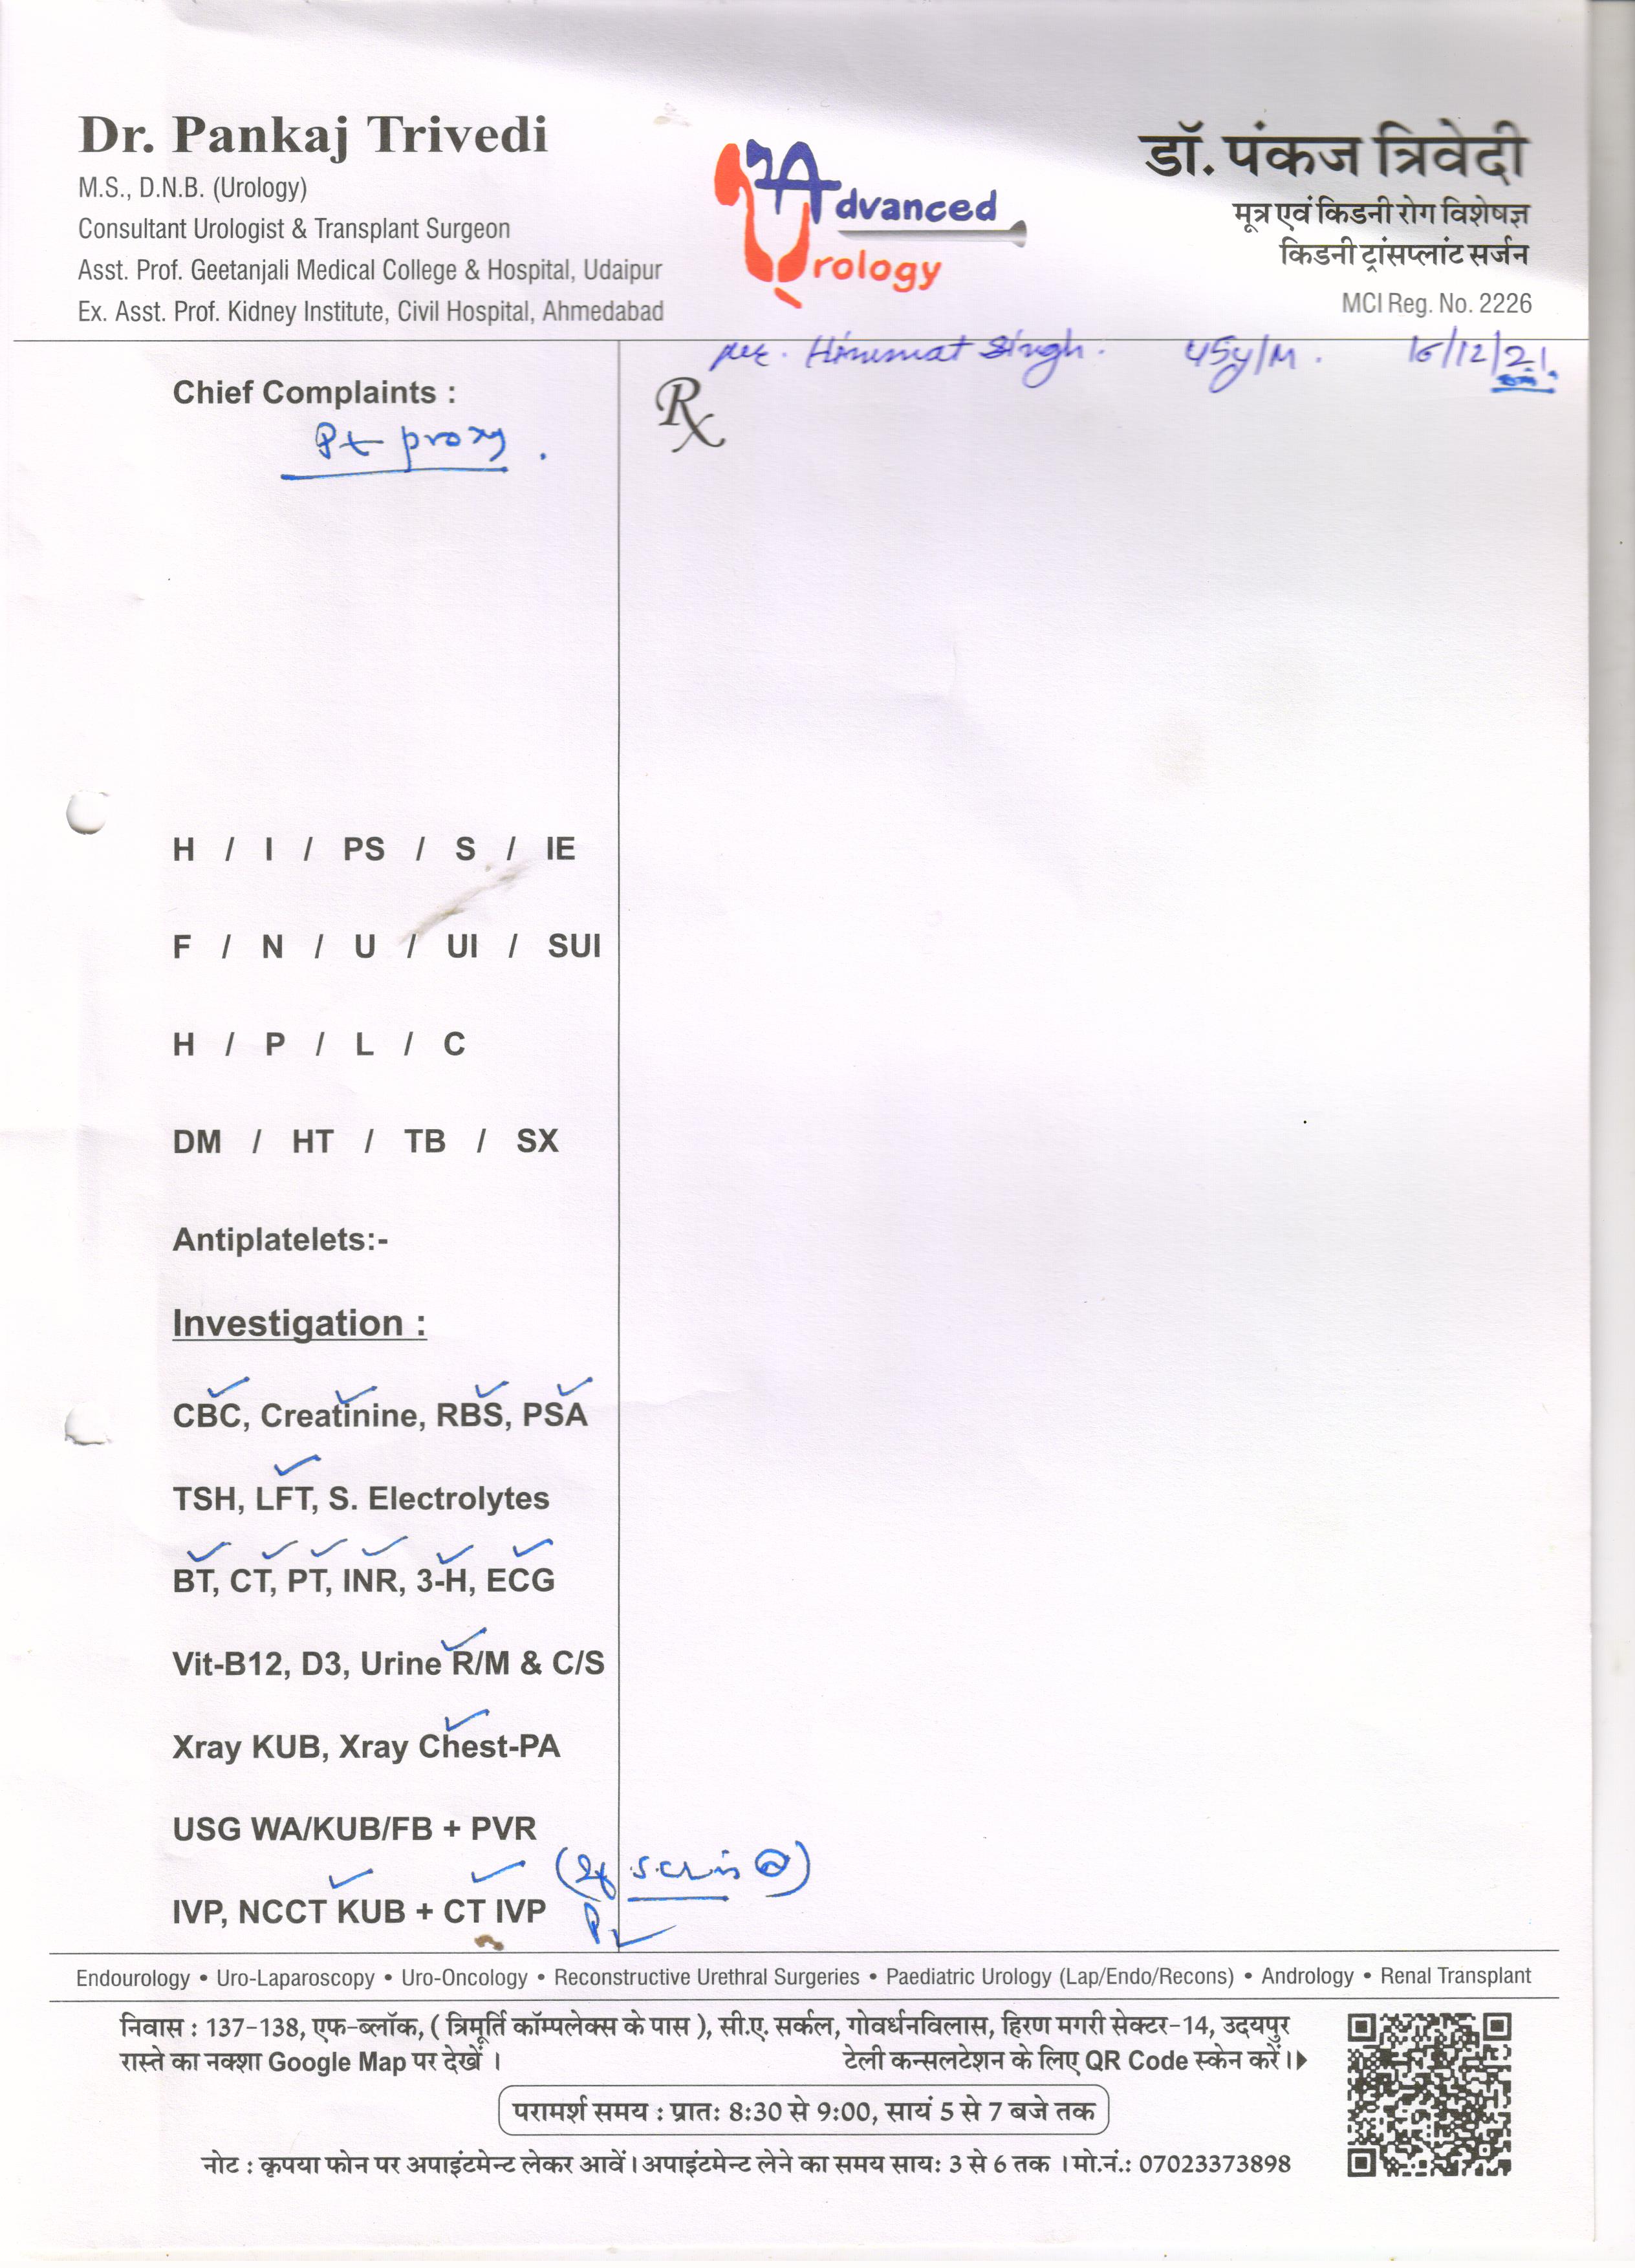 Dr. Pankaj Trivedi
M.S., D.N.B. (Urology)
Consultant Urologist & Transplant Surgeon
Asst. Prof. Geetanjali Medical College & Hospital, Udaipur
Ex. Asst. Prof. Kidney Institute, Civil Hospital, Ahmedabad
Advanced
Urology
डॉ. पंकज त्रिवेदी
मूत्र एवं किडनी रोग विशेषज्ञ
किडनी ट्रांसप्लांट सर्जन
MCI Reg. No. 2226
Himmat Singh. 45y/M. 16/12/21
Chief Complaints :
Rx
Pt proxy.
H / I / PS / S / IE
F / N / U / UI / SUI
H / P / L / C
DM / HT / TB / SX
Antiplatelets:-
Investigation :
CBC, Creatinine, RBS, PSA
TSH, LFT, S. Electrolytes
BT, CT, PT, INR, 3-H, ECG
Vit-B12, D3, Urine R/M & C/S
Xray KUB, Xray Chest-PA
USG WA/KUB/FB + PVR
(If s.cr is N)
IVP, NCCT KUB + CT IVP
Endourology • Uro-Laparoscopy • Uro-Oncology • Reconstructive Urethral Surgeries • Paediatric Urology (Lap/Endo/Recons) • Andrology • Renal Transplant
निवास : 137-138, एफ-ब्लॉक, ( त्रिमूर्ति कॉम्पलेक्स के पास ), सी.ए. सर्कल, गोवर्धनविलास, हिरण मगरी सेक्टर-14, उदयपुर
रास्ते का नक्शा Google Map पर देखें । टेली कन्सलटेशन के लिए QR Code स्केन करें।
परामर्श समय : प्रातः 8:30 से 9:00, सायं 5 से 7 बजे तक
नोट : कृपया फोन पर अपाइंटमेन्ट लेकर आवें। अपाइंटमेन्ट लेने का समय सायः 3 से 6 तक । मो.नं.: 07023373898